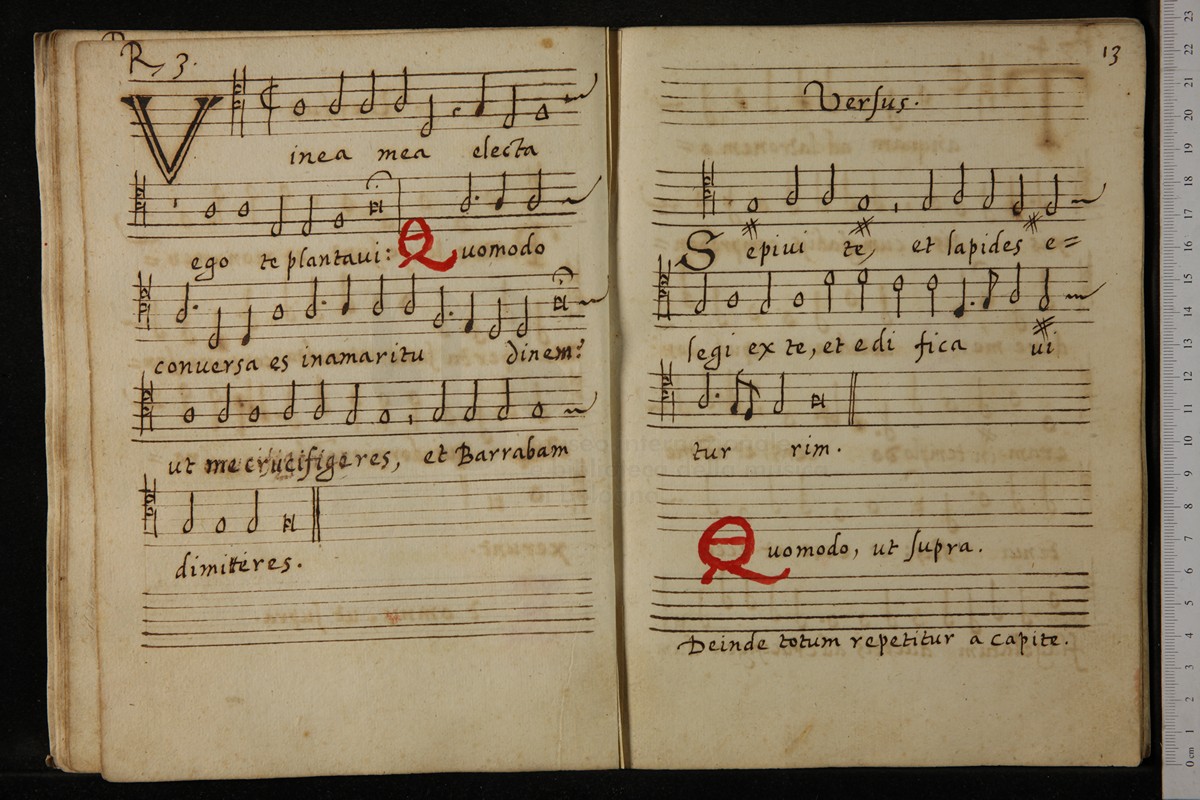 R, 3.
Vinea mea electa
ego te plantaui: Quomodo
conuersa es in amaritu dinem?
ut me crucifigeres, et Barrabam
dimitteres.
13
Versus.
Sepiui te, et lapides e=
legi ex te, et edi fica ui
tur rim.
Quomodo, ut supra.
Deinde totum repetitur a capite.